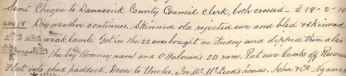 Sent Cheque to Dannevirk County Council Clerk, both crossed - £18-2-10
Dry weather continues. Skinned old rejected ewe and bled & skinned
weak lamb. Got in the 22 ewes bought on Friday and dipped them also
the big Romney ram and O'Halloran's SD ram. Put ewe lambs off
Flat into shed paddock. Drove to Uncles, in Mr McLeod's house. John & Co.